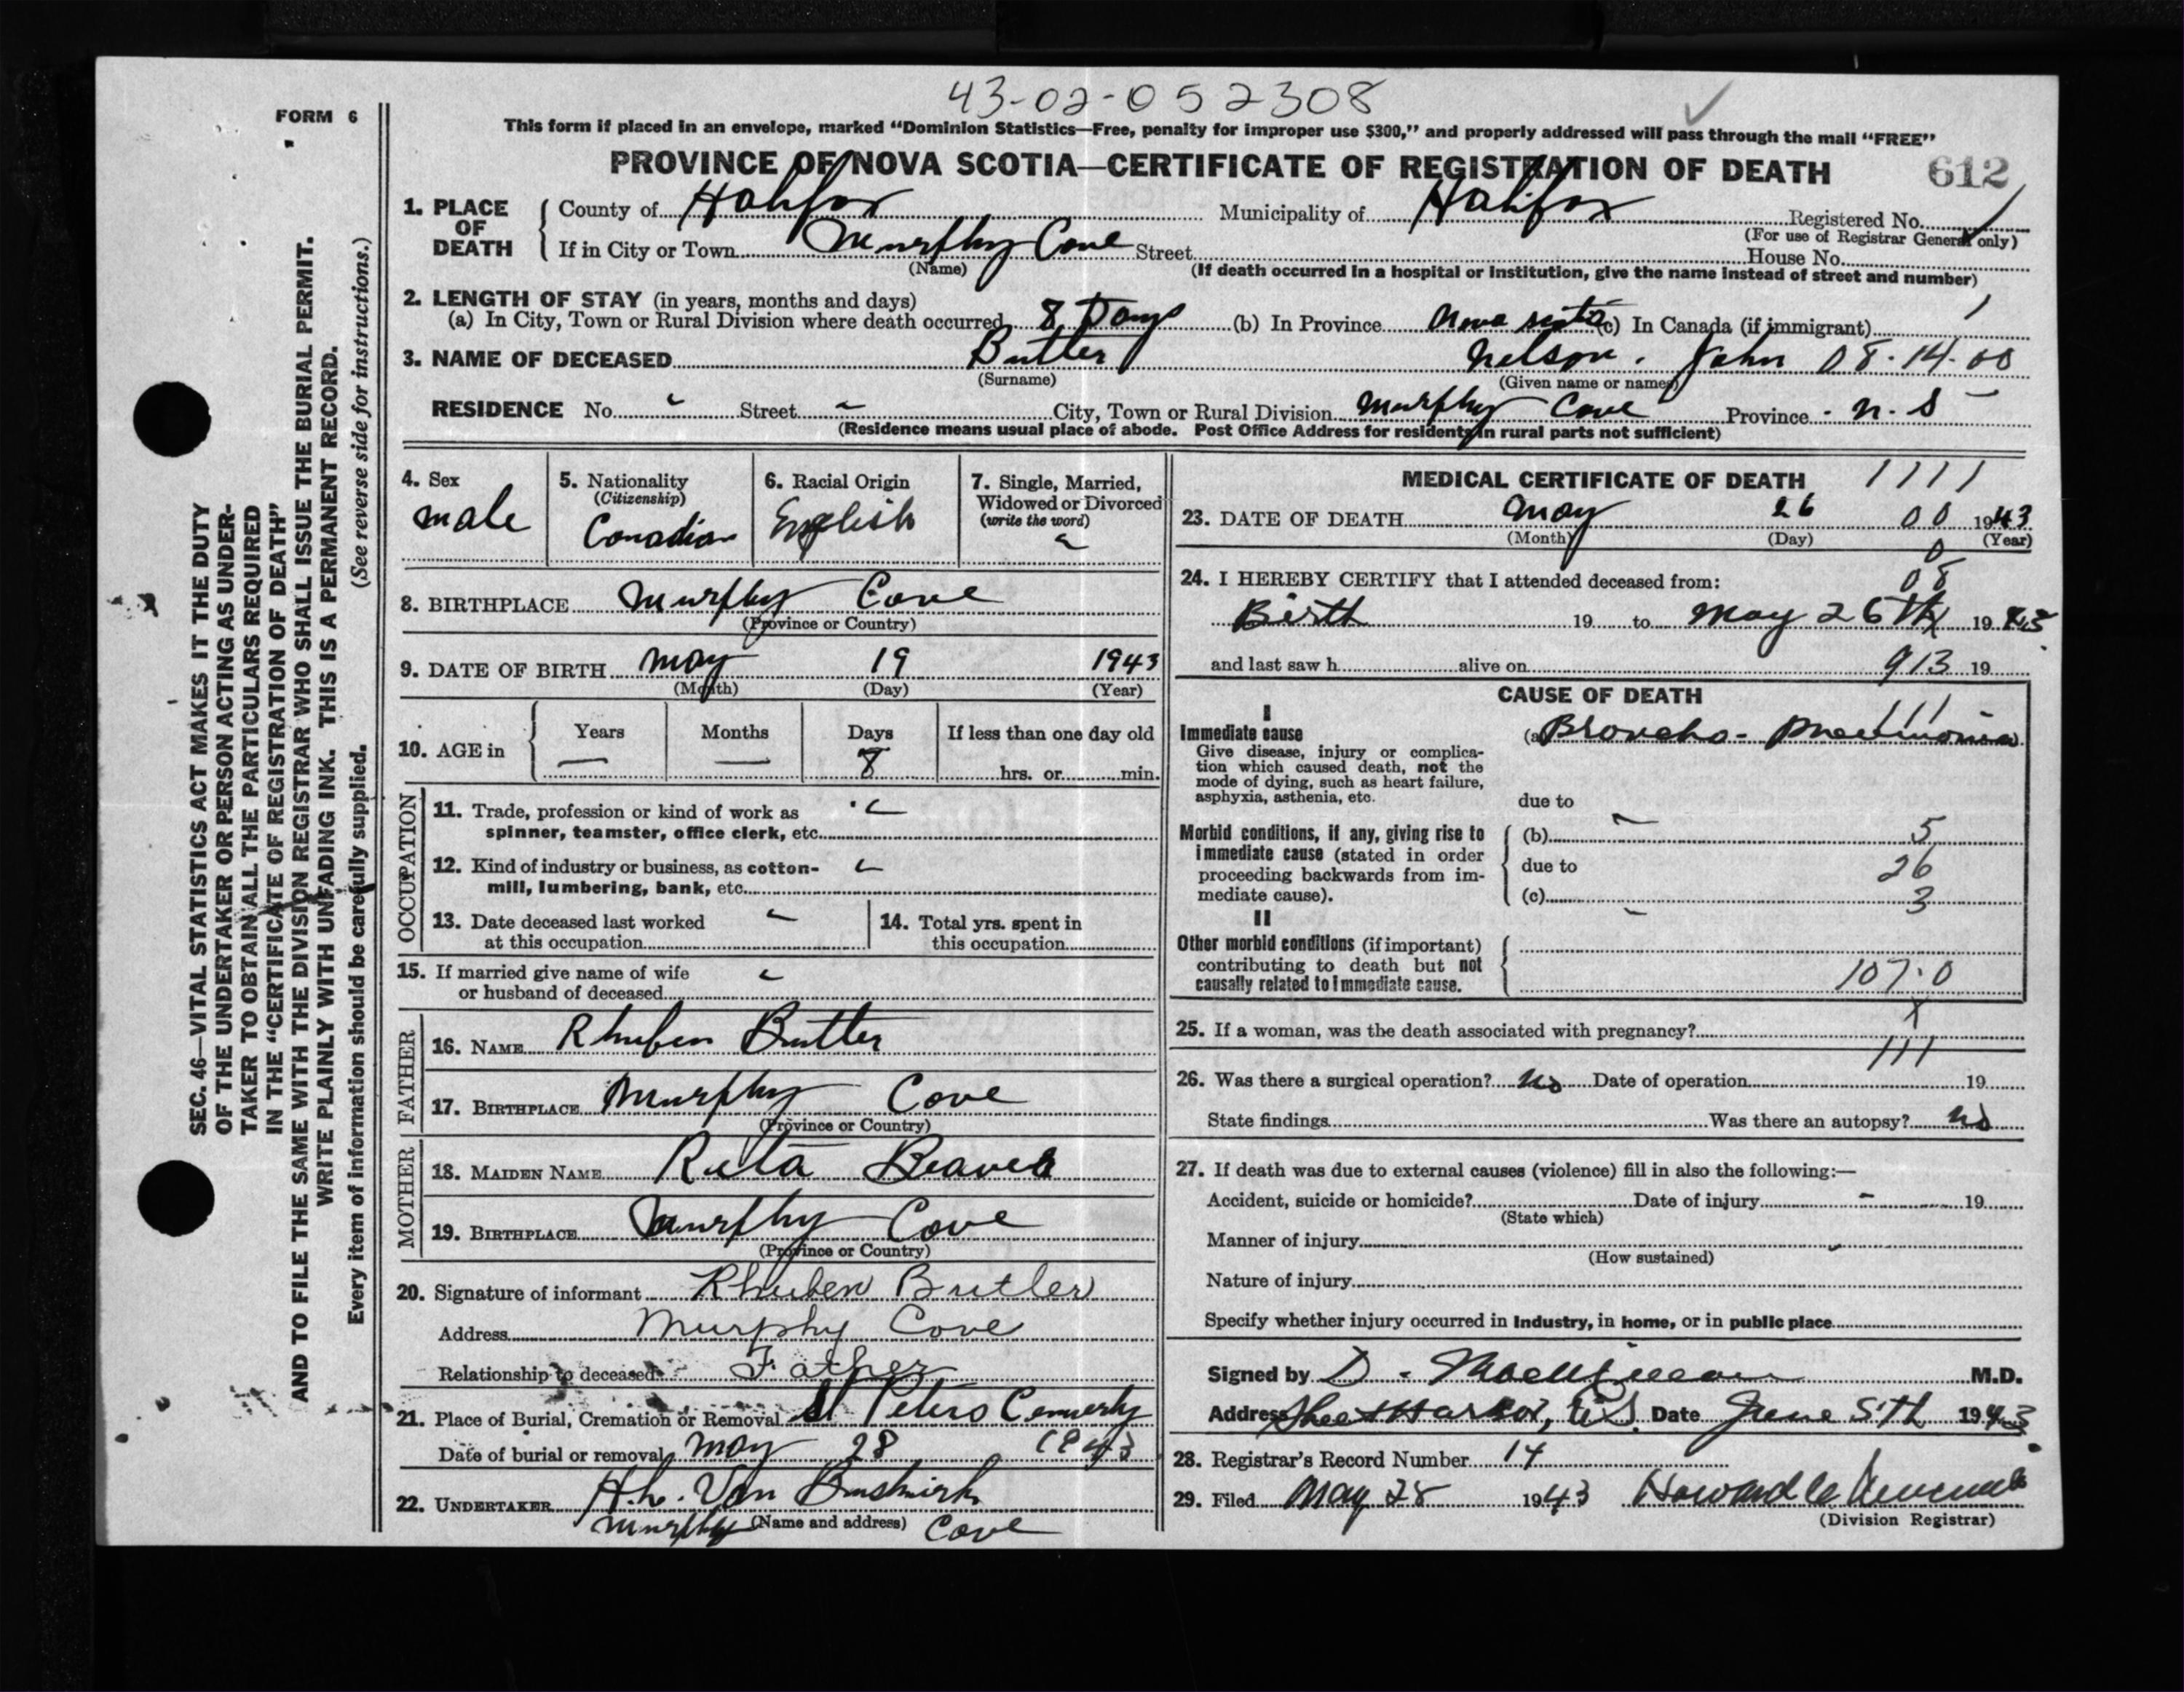 43-02-052308
FORM 6
This form if placed in an envelope, marked "Dominion Statistics—Free, penalty for improper use $300," and properly addressed will pass through the mail "FREE"
PROVINCE OF NOVA SCOTIA—CERTIFICATE OF REGISTRATION OF DEATH 612
1. PLACE OF DEATH County of Halifax Municipality of Halifax Registered No.
(For use of Registrar General only)
If in City or Town Murphy Cove Street House No.
(Name) (If death occurred in a hospital or institution, give the name instead of street and number)
2. LENGTH OF STAY (in years, months and days)
(a) In City, Town or Rural Division where death occurred 8 Days (b) In Province Nova Scotia (c) In Canada (if immigrant)
3. NAME OF DECEASED Butler Nelson. John 08-14-00
(Surname) (Given name or names)
RESIDENCE No. Street City, Town or Rural Division Murphy Cove Province N.S
(Residence means usual place of abode. Post Office Address for residents in rural parts not sufficient)
4. Sex male
5. Nationality (Citizenship) Canadian
6. Racial Origin English
7. Single, Married, Widowed or Divorced (write the word)
8. BIRTHPLACE Murphy Cove
(Province or Country)
9. DATE OF BIRTH May 19 1943
(Month) (Day) (Year)
10. AGE in Years — Months — Days 8 If less than one day old hrs. or min.
OCCUPATION
11. Trade, profession or kind of work as
spinner, teamster, office clerk, etc.
12. Kind of industry or business, as cotton-
mill, lumbering, bank, etc.
13. Date deceased last worked
at this occupation
14. Total yrs. spent in
this occupation
15. If married give name of wife
or husband of deceased
FATHER
16. NAME Rhuben Butler
17. BIRTHPLACE Murphy Cove
(Province or Country)
MOTHER
18. MAIDEN NAME Rita Beaver
19. BIRTHPLACE Murphy Cove
(Province or Country)
20. Signature of informant Rhuben Butler
Address Murphy Cove
Relationship to deceased Father
21. Place of Burial, Cremation or Removal St Peters Cemerty
Date of burial or removal May 28 1943
22. UNDERTAKER H.L. Van Buskirk
(Name and address)
Murphy Cove
MEDICAL CERTIFICATE OF DEATH 1111
23. DATE OF DEATH May 26 00 1943
(Month) (Day) (Year)
0
24. I HEREBY CERTIFY that I attended deceased from: 08
Birth 19 to May 26th 1943
and last saw h alive on 913 19
CAUSE OF DEATH
I
111
Immediate cause (a) Broncho-Pneumonia
Give disease, injury or complica-
tion which caused death, not the
mode of dying, such as heart failure,
asphyxia, asthenia, etc.
due to
Morbid conditions, if any, giving rise to (b) 5
immediate cause (stated in order due to 26
proceeding backwards from im-
mediate cause). (c) 3
II
Other morbid conditions (if important)
contributing to death but not
causally related to immediate cause. 107.0
X
25. If a woman, was the death associated with pregnancy?
111
26. Was there a surgical operation? No Date of operation 19
State findings Was there an autopsy? No
27. If death was due to external causes (violence) fill in also the following:—
Accident, suicide or homicide? Date of injury 19
(State which)
Manner of injury
(How sustained)
Nature of injury
Specify whether injury occurred in Industry, in home, or in public place
Signed by D. M.D.
Address Sheet Harbor, Date June 5th 1943
28. Registrar's Record Number 14
29. Filed May 28 1943 Howard
(Division Registrar)
SEC. 46—VITAL STATISTICS ACT MAKES IT THE DUTY
OF THE UNDERTAKER OR PERSON ACTING AS UNDER-
TAKER TO OBTAIN ALL THE PARTICULARS REQUIRED
IN THE "CERTIFICATE OF REGISTRATION OF DEATH"
AND TO FILE THE SAME WITH THE DIVISION REGISTRAR WHO SHALL ISSUE THE BURIAL PERMIT.
WRITE PLAINLY WITH UNFADING INK. THIS IS A PERMANENT RECORD.
Every item of information should be carefully supplied. (See reverse side for instructions.)